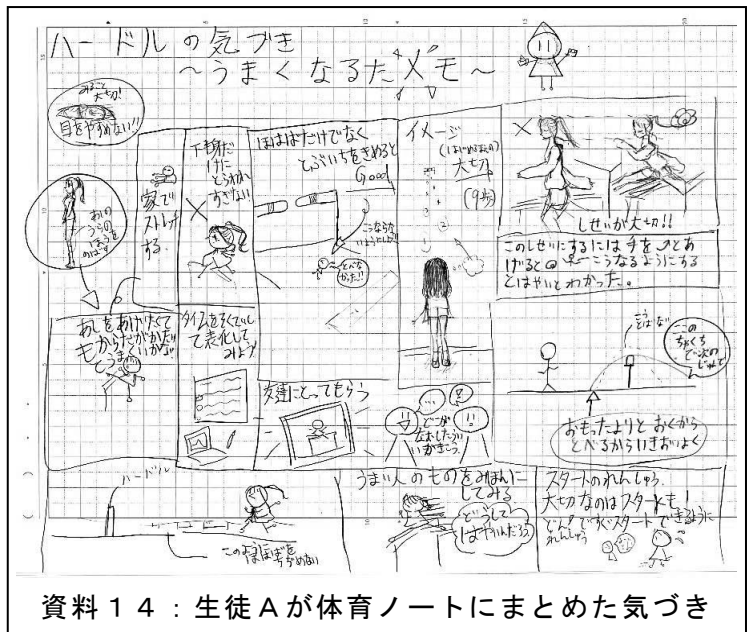 ハードルの気づき
～うまくなるためメモ～
みること
大切!
目をやすめない!!
あしの
うらの
ほうを
のばす
家で
ストレッチ
する。
下半身だ
けに
とらわれ
すぎない
ほはばだけでなく
とぶいちをきめると
Good
こうならな
いように
とべな
かった!!
イメージ
大切
(9歩)
しせいが大切!!
このしせいにするには手をとあ
げると こうなるようにする
とはやいとわかった。
あしをあげたくて
もからだがかたい
とうまくいかない
タイムをそくていし
て表化して
みよう
友達にとってもらう
どこが
なおしたらい
いかきこう。
ここの
ちゃくち
で次の
じゅんび
おもったよりとおくから
とべるからいきおいよく
ハードル
このほはばを
ちぢめない
うまい人のものをみほんに
してみる
どうして
はやいんだろう
スタートのれんしゅう
大切なのはスタートも!
どん!ですぐスタートできるように
れんしゅう
資料14：生徒Aが体育ノートにまとめた気づき